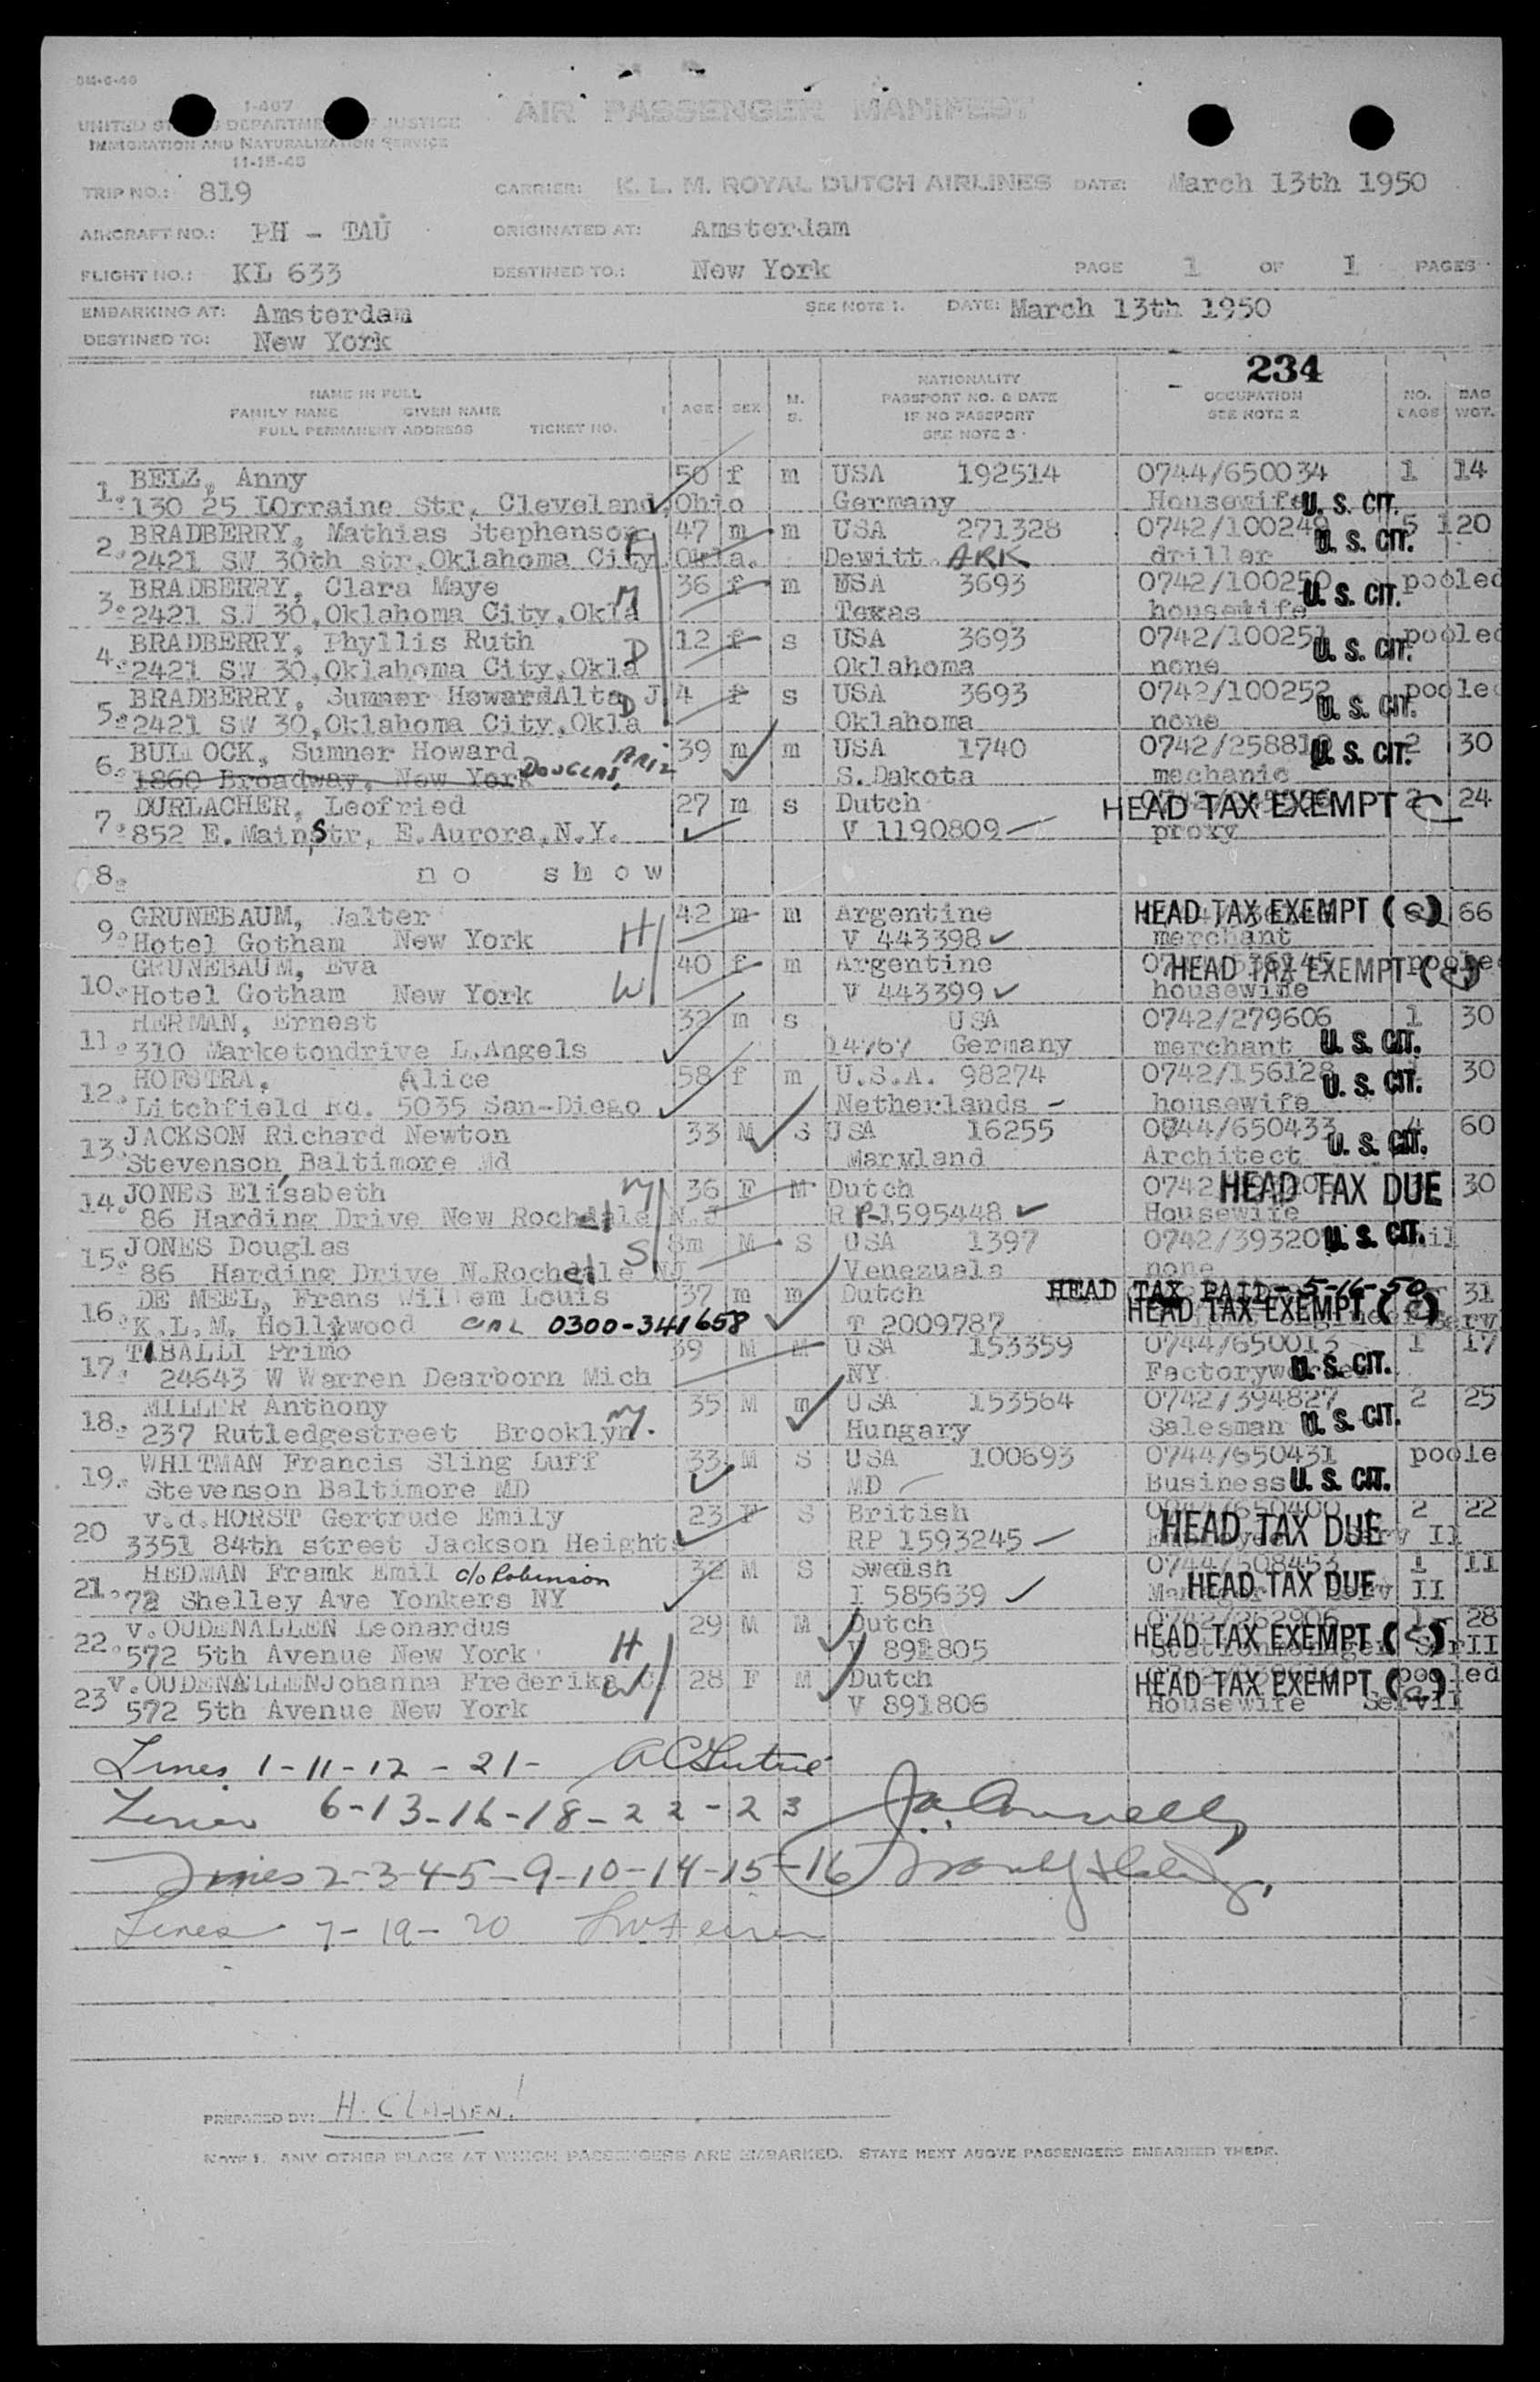 I-407
AIR PASSENGER MANIFEST
UNITED DEPARTMENT JUSTICE
IMMIGRATION AND NATURALIZATION SERVICE
11-15-48
TRIP NO.: 819 CARRIER: K. L. M. ROYAL DUTCH AIRLINES DATE: March 13th 1950
AIRCRAFT NO.: PH - TAU ORIGINATED AT: Amsterdam
FLIGHT NO.: KL 633 DESTINED TO.: New York PAGE 1 OF 1 PAGES
EMBARKING AT: Amsterdam SEE NOTE 1. DATE: March 13th 1950
DESTINED TO: New York
234
NAME IN FULL
FAMILY NAME GIVEN NAME
FULL PERMANENT ADDRESS TICKET NO.
AGE SEX M. S.
NATIONALITY
PASSPORT NO. & DATE
IF NO PASSPORT
SEE NOTE 3
OCCUPATION
SEE NOTE 2
NO. BAGS
BAG WGT.
1. BELZ, Anny 50 f m USA 192514 0744/650034 1 14
130 25 LOrraine Str, Cleveland, Ohio Germany Housewife U. S. CIT.
2. BRADBERRY, Mathias Stephenson 47 m m USA 271328 0742/100249 5 120
2421 SW 30th str, Oklahoma City, Okla. F Dewitt ARK driller U. S. CIT.
3. BRADBERRY, Clara Maye 36 f m USA 3693 0742/100250 pooled
2421 SW 30, Oklahoma City, Okla M Texas housewife U. S. CIT.
4. BRADBERRY, Phyllis Ruth 12 f s USA 3693 0742/100251 pooled
2421 SW 30, Oklahoma City, Okla D Oklahoma none U. S. CIT.
5. BRADBERRY, Sumner Howard Alta J. 4 f s USA 3693 0742/100252 pooled
2421 SW 30, Oklahoma City, Okla D Oklahoma none U. S. CIT.
6. BULLOCK, Sumner Howard 39 m m USA 1740 2 30
1860 Broadway, New York DOUGLAS, ARIZ S. Dakota mechanic U. S. CIT.
7. DURLACHER, Leofried 27 m s Dutch HEAD TAX EXEMPT C 2 24
852 E. Main Str, E. Aurora, N.Y. V 1190809 proxy
8. no show
9. GRUNEBAUM, Walter 42 m m Argentine HEAD TAX EXEMPT (C) 66
Hotel Gotham New York H V 443398 merchant
10. GRUNEBAUM, Eva 40 f m Argentine HEAD TAX EXEMPT (C) pooled
Hotel Gotham New York W V 443399 housewife
11. HERMAN, Ernest 32 m s USA 0742/279606 1 30
310 Marketondrive L. Angels 14767 Germany merchant U. S. CIT.
12. HOFSTRA, Alice 58 f m U.S.A. 98274 0742/156128 30
Litchfield Rd. 5035 San-Diego Netherlands housewife U. S. CIT.
13. JACKSON Richard Newton 33 M S USA 16255 0744/650433 4 60
Stevenson Baltimore Md Maryland Architect U. S. CIT.
14. JONES Elisabeth 36 F M Dutch 0742 HEAD TAX DUE 30
86 Harding Drive New Rochelle N.J M RP 1595448 Housewife
15. JONES Douglas 8m M S USA 1397 0742/39320 U. S. CIT. nil
86 Harding Drive N. Rochelle NJ S Venezuala none
16. DE MEEL, Frans Willem Louis 37 m m Dutch HEAD TAX PAID - 5-16-50 31
K.L.M. Hollywood CAL 0300-341658 T 2009787 HEAD TAX EXEMPT (C) Serv
17. TIBALLI Primo 39 M M USA 153359 0744/650013 1 17
24643 W Warren Dearborn Mich NY Factoryworker U. S. CIT.
18. MILLER Anthony 35 M m USA 153564 0742/394827 2 25
237 Rutledgestreet Brooklyn. NY Hungary Salesman U. S. CIT.
19. WHITMAN Francis Sling Luff 33 M S USA 100693 0744/650431 poole
Stevenson Baltimore MD MD Business U. S. CIT.
20 v.d. HORST Gertrude Emily 23 F S British 0744/650400 2 22
3351 84th street Jackson Heights RP 1593245 HEAD TAX DUE
21. HEDMAN Framk Emil c/o Robinson 32 M S Swedish 0744/508453 1 II
72 Shelley Ave Yonkers NY I 585639 HEAD TAX DUE II
22. v. OUDENALLEN Leonardus 29 M M Dutch 0742/262906 1 28
572 5th Avenue New York H V 891805 HEAD TAX EXEMPT (C)
23 v. OUDENALLEN Johanna Frederika C. 28 F M Dutch HEAD TAX EXEMPT (C) pooled
572 5th Avenue New York W V 891806 Housewife ServII
Lines 1-11-12-21-
Lines 6-13-16-18-22-23
Lines 2-3-4-5-9-10-14-15-16
Lines 7-19-20
PREPARED BY: H. CLAASEN
NOTE 1. ANY OTHER PLACE AT WHICH PASSENGERS ARE EMBARKED. STATE NEXT ABOVE PASSENGERS EMBARKED THERE.